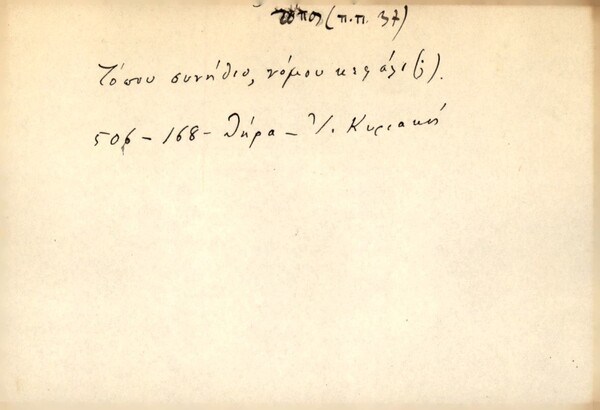 τόπος (π.π. 37)
Τόπου συνήθιο, νόμου κεφάλι (;).
506 - 168 - Θήρα - Ι. Κυριακός